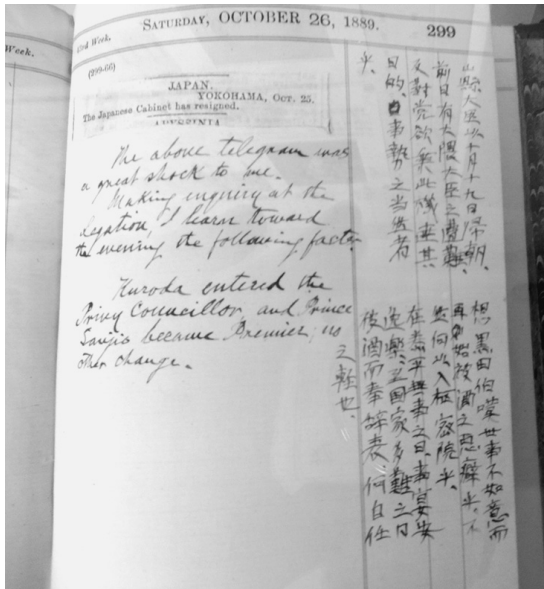 Week.
43rd Week.
SATURDAY, OCTOBER 26, 1889.
299
(299-66)
JAPAN.
YOKOHAMA, Oct. 25.
The Japanese Cabinet has resigned.
ABYSSINIA
The above telegram was
a great shock to me.
Making inquiry at the
legation, I learn toward
the evening the following facts.
Kuroda entered the
Privy Councillor, and Prince
Sanjio became Premier; no
other change.
山縣大臣以十月十九日帰朝、
前日有大隈大臣之遭難、
反対党欲乗此機達其
目的、事勢之当然者
乎、
想黒田伯嘆世事不如意而
再始被酒之悪癖乎、不
然何以入枢密院乎、
在泰平無事之日、事宴安
逸楽、至国家多難之日
被酒而奉辞表、何自任
之軽也、